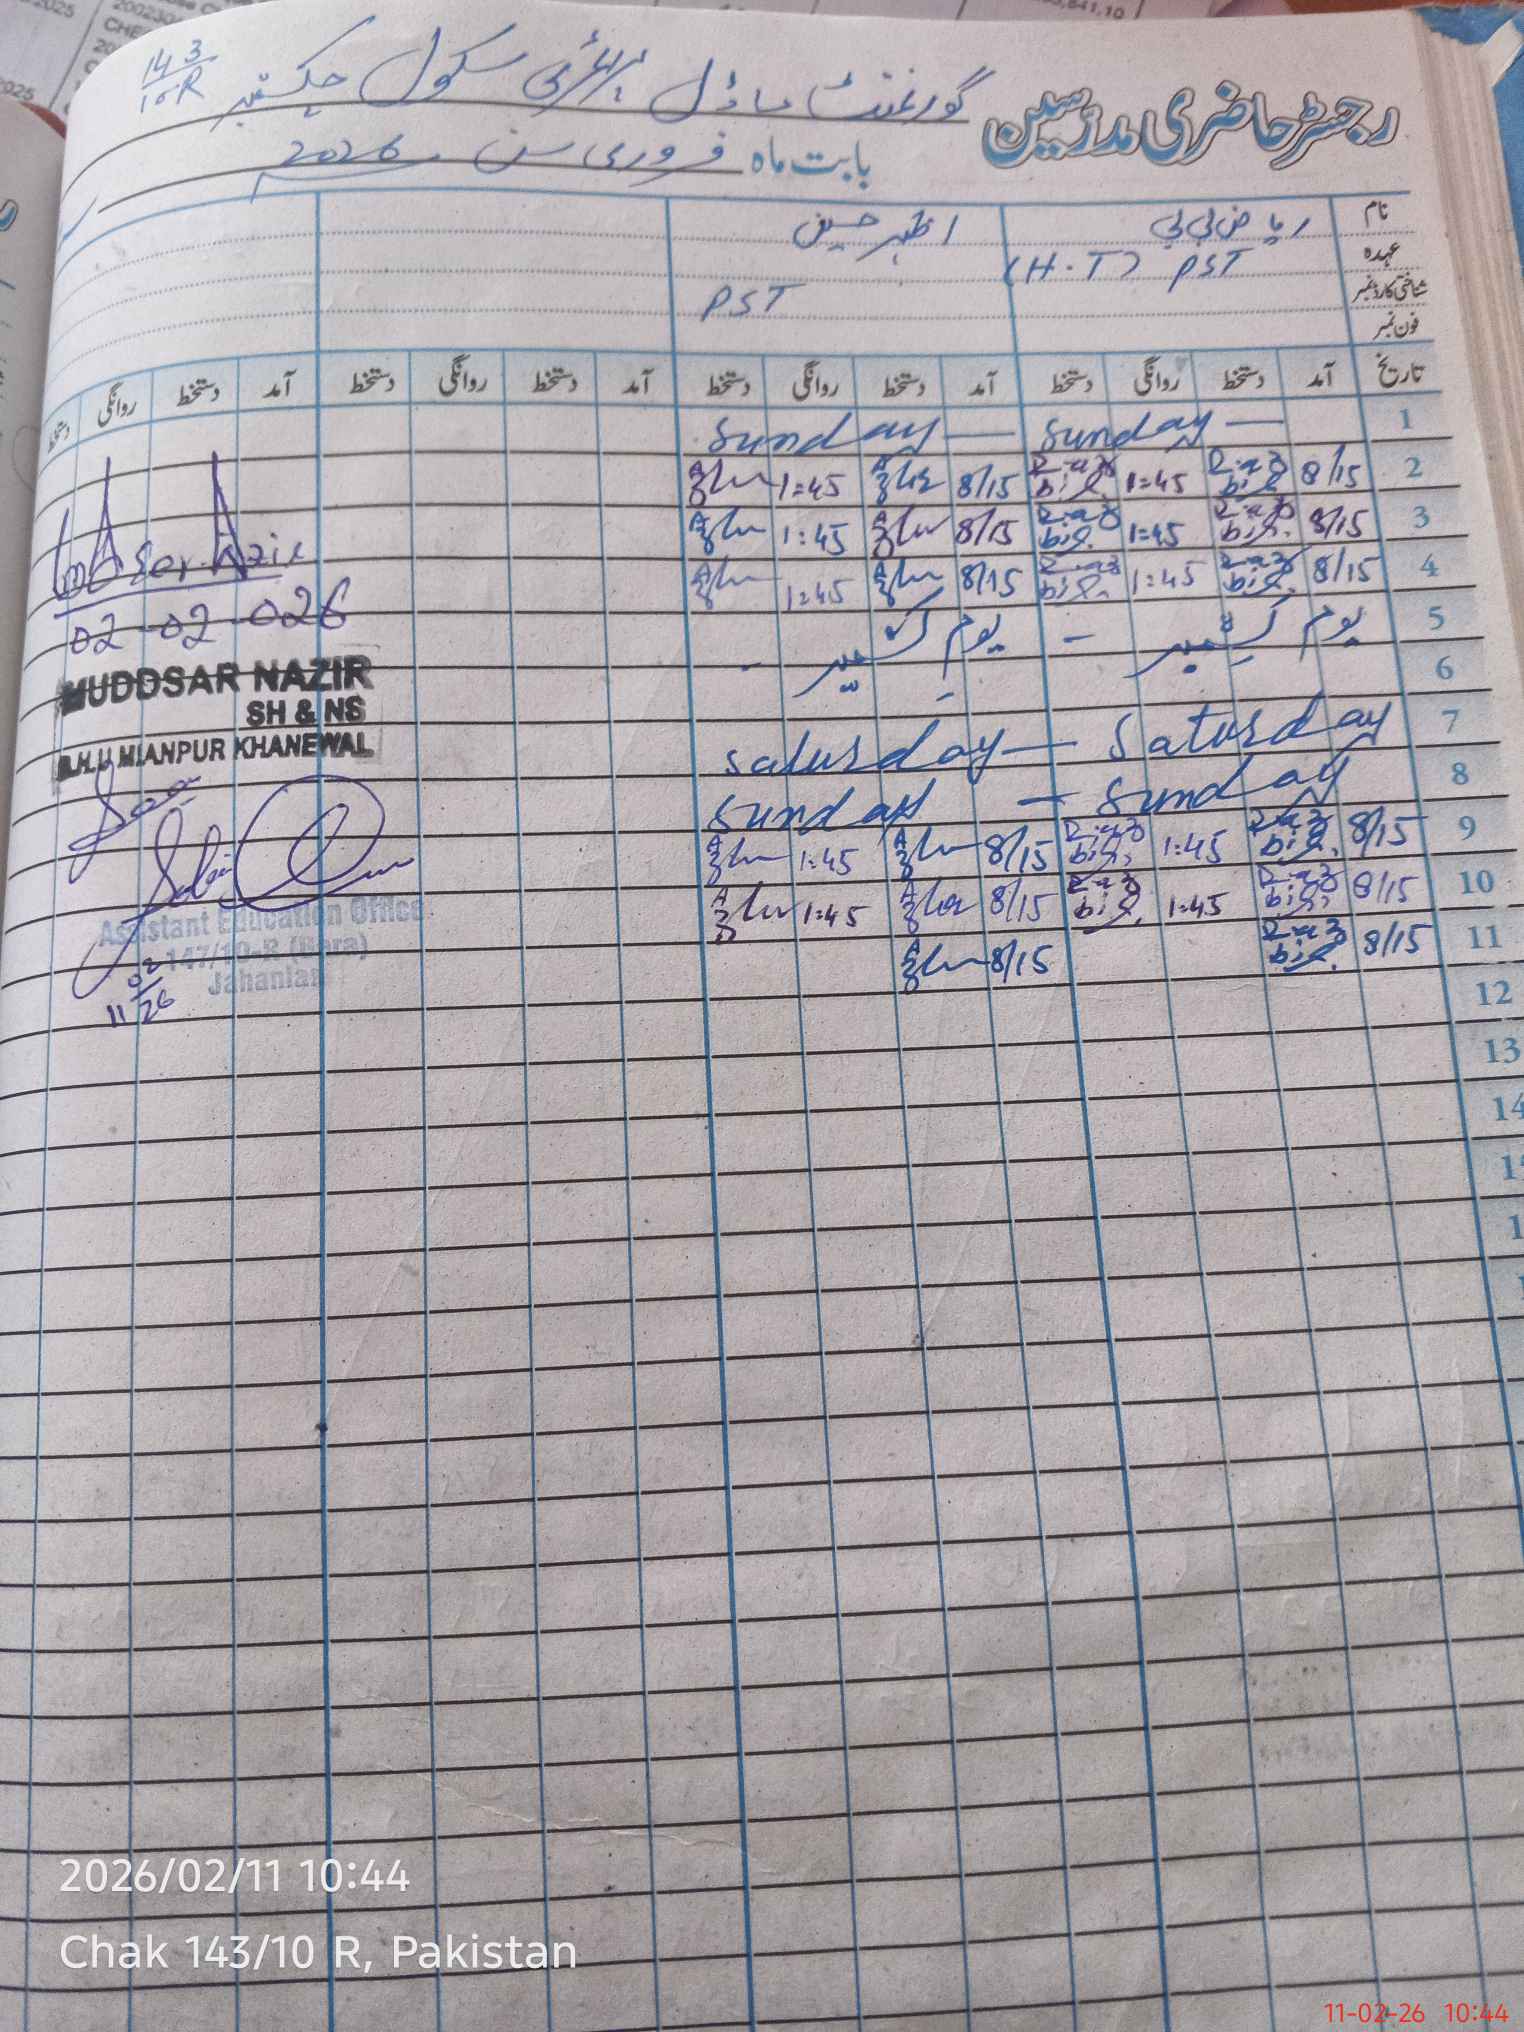 رجسٹر حاضری مدرسین گورنمنٹ ماڈل پرائمری سکول چک نمبر 143/10R
بابت ماہ فروری سن 2026
نام ریاض بی بی اظہر حسین
عہدہ PST (H.T)
شناختی کارڈ نمبر PST
فون نمبر
تاریخ آمد دستخط روانگی دستخط آمد دستخط روانگی دستخط آمد دستخط روانگی دستخط آمد دستخط روانگی دستخط
1 Sunday — Sunday —
2 8/15 Riaz bibi 1:45 Riaz bibi 8/15 1:45
3 8/15 Riaz bibi 1:45 Riaz bibi 8/15 1:45
4 8/15 Riaz bibi 1:45 Riaz bibi 8/15 1:45
5 یوم کشمیر - یوم کشمیر -
6
7 Saturday — Saturday
8 Sunday — Sunday
9 8/15 Riaz bibi 1:45 Riaz bibi 8/15 1:45
10 8/15 Riaz bibi 1:45 Riaz bibi 8/15 1:45
11 8/15 Riaz bibi 8/15
12
13
14
02-02-026
MUDDSAR NAZIR
SH & NS
B.H.U MIANPUR KHANEWAL
Assistant Education Office
147/10-R (Bara)
Jahanian
11/02/26
2026/02/11 10:44
Chak 143/10 R, Pakistan
11-02-26 10:44